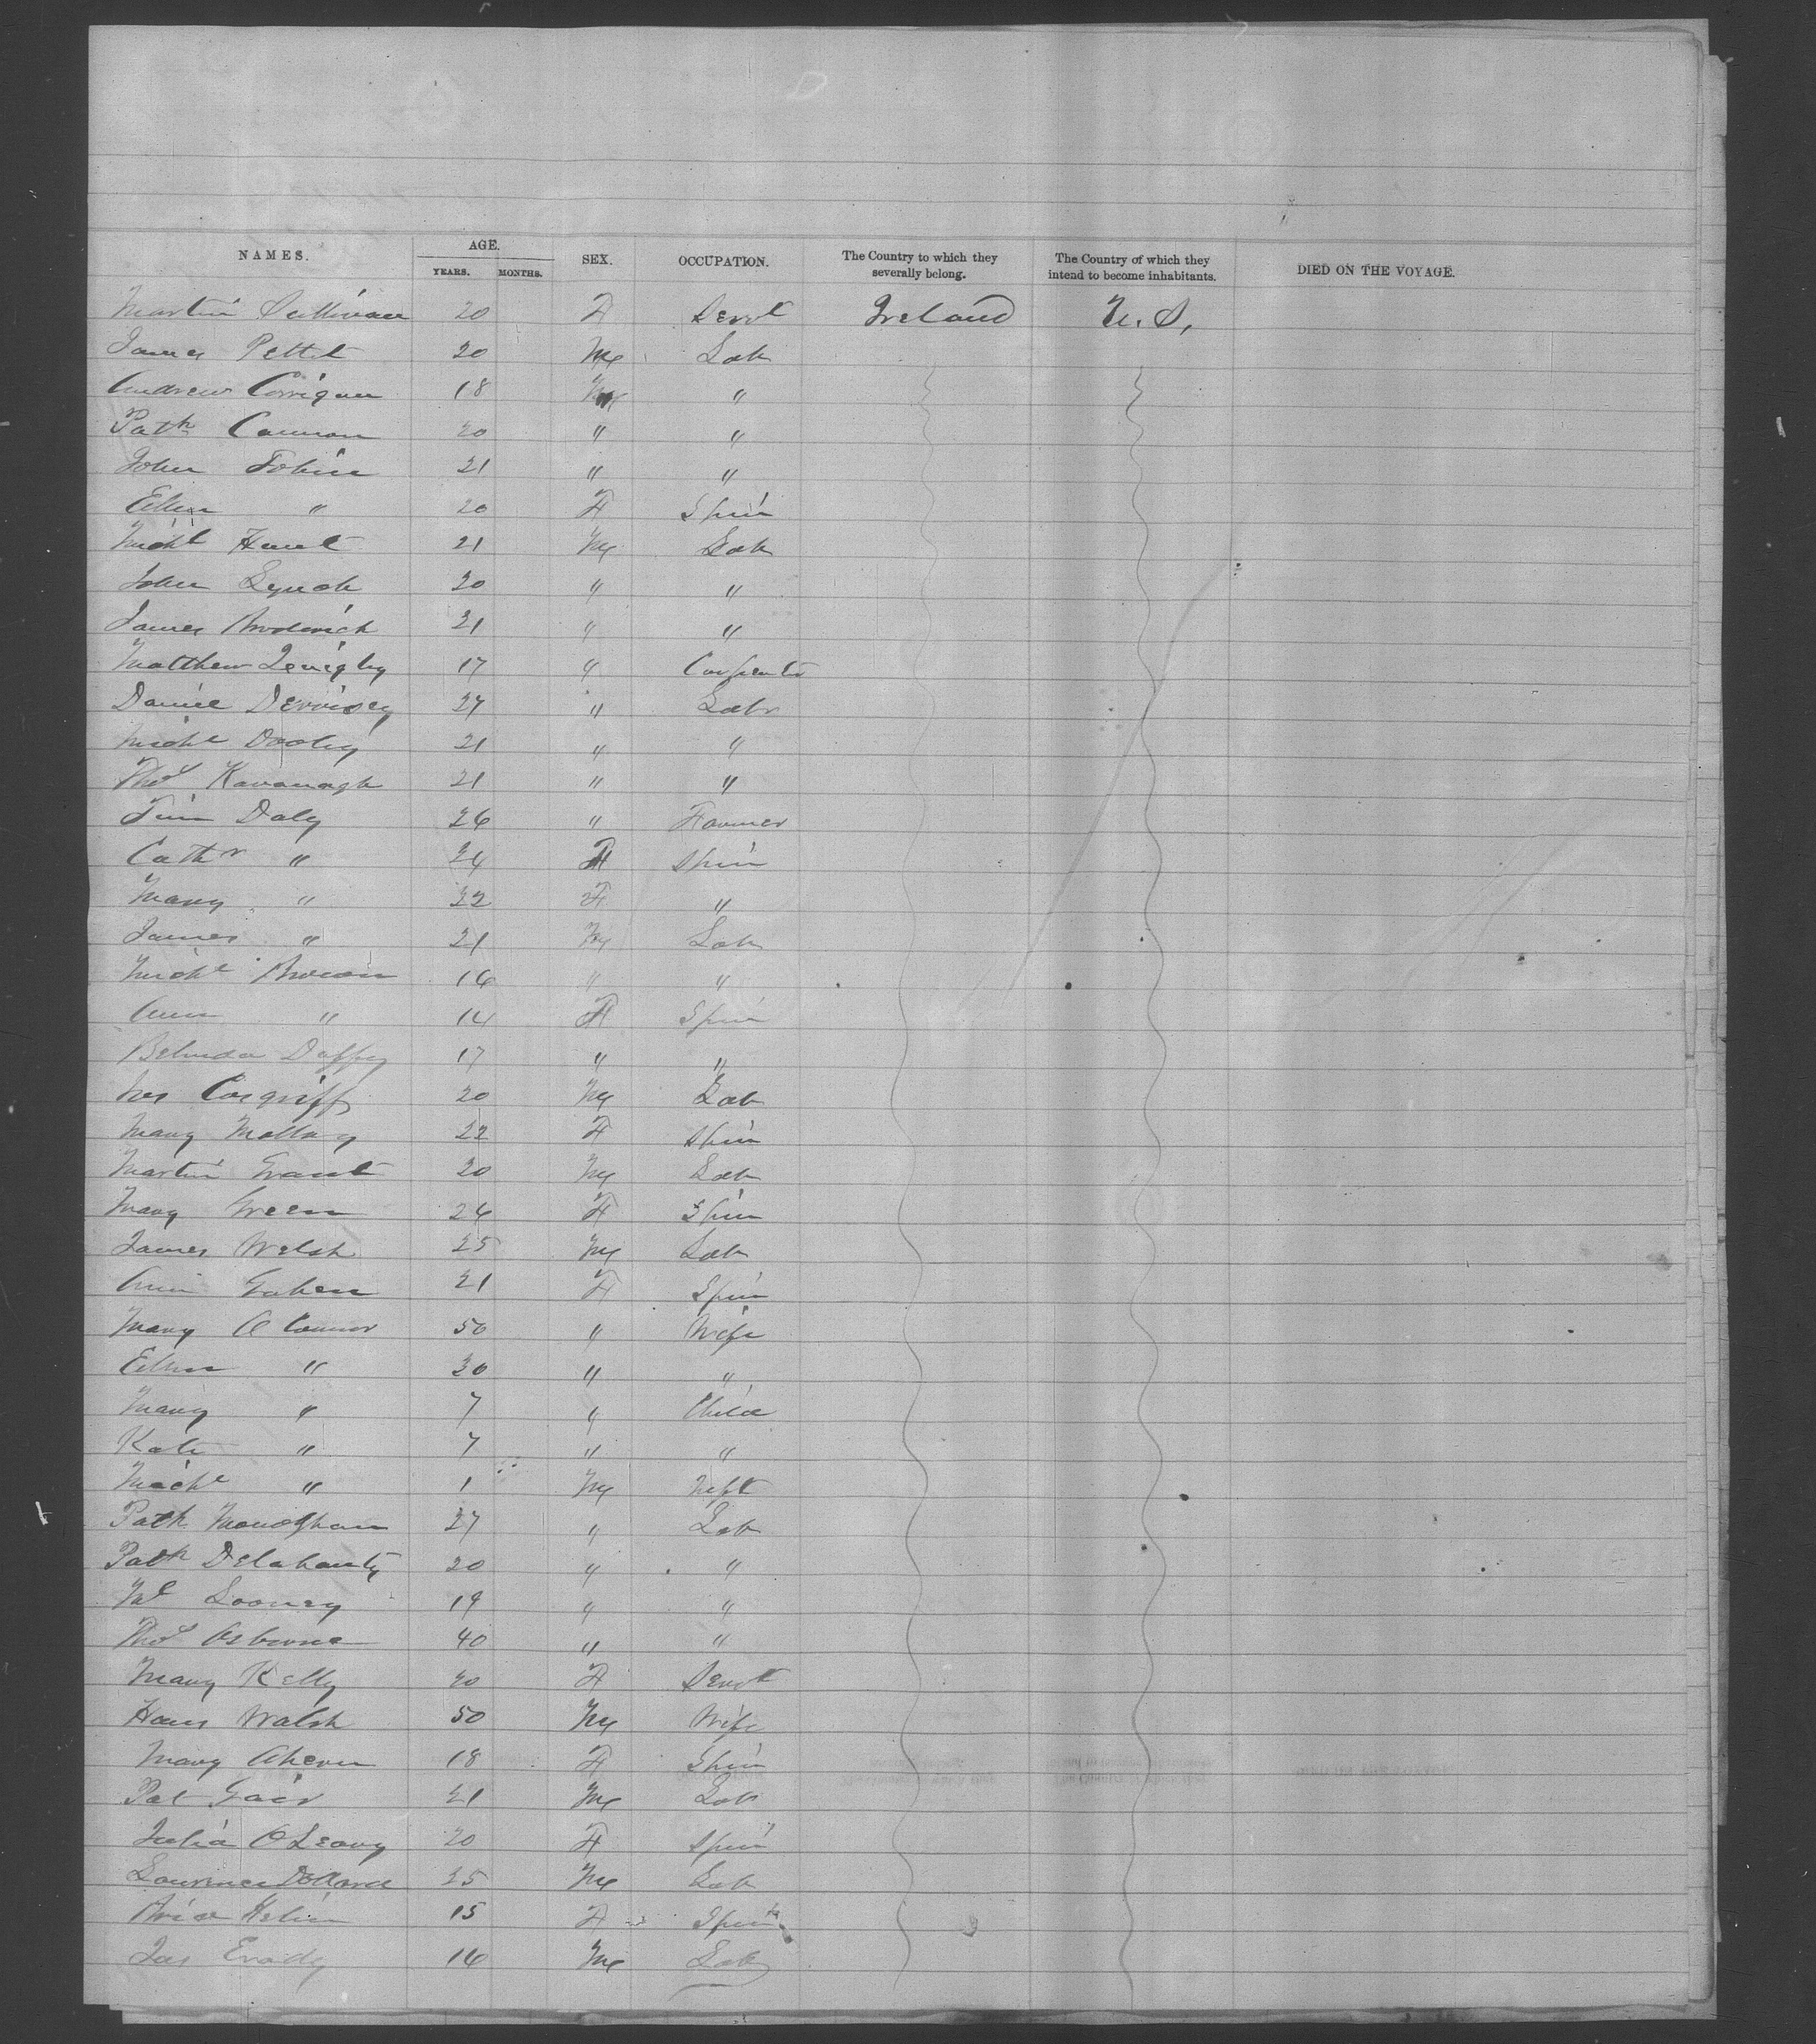 NAMES. AGE. SEX. OCCUPATION. The Country to which they severally belong. The Country of which they intend to become inhabitants. DIED ON THE VOYAGE.
YEARS. MONTHS.
Martin Sullivan 20 F Servt Ireland U.S.
James Pettit 20 M Lab
Andrew Corrigan 18 M "
Patk Cannon 20 " "
John Tobin 21 " "
Ellen " 20 F Spin
Michl Hunt 21 M Lab
John Lynch 20 " "
James Broderick 21 " "
Matthew 17 " Carpenter
Daniel 27 " Labr
Michl Dooley 21 " "
Thos Kavanagh 21 " "
Tim Daly 26 " Farmer
Cathr " 24 F Spin
Mary " 22 F "
James " 21 M Lab
Michl 16 " "
Ann " 14 F Spin
Belinda Duffy 17 " "
Cosgriff 20 M Lab
Mary 22 F Spin
Martin Grant 20 M Lab
Mary Green 24 F Spin
James Welsh 25 M Lab
Ann 21 F Spin
Mary O Connor 50 " Wife
Ellen " 30 " "
Mary " 7 " Child
Kate " 7 " "
Michl " 1 M Inft
Patk Monaghan 27 " Lab
Patk Delahanty 20 " "
Ml Looney 19 " "
Thos Osborne 40 " "
Mary Kelly 20 F Servt
Walsh 50 M Wife
Mary Ahern 18 F Spin
Pat 21 M Lab
Julia O Leary 20 F Spin
Laurence Dollard 25 M Lab
15 F Spin
Jas 16 M Lab